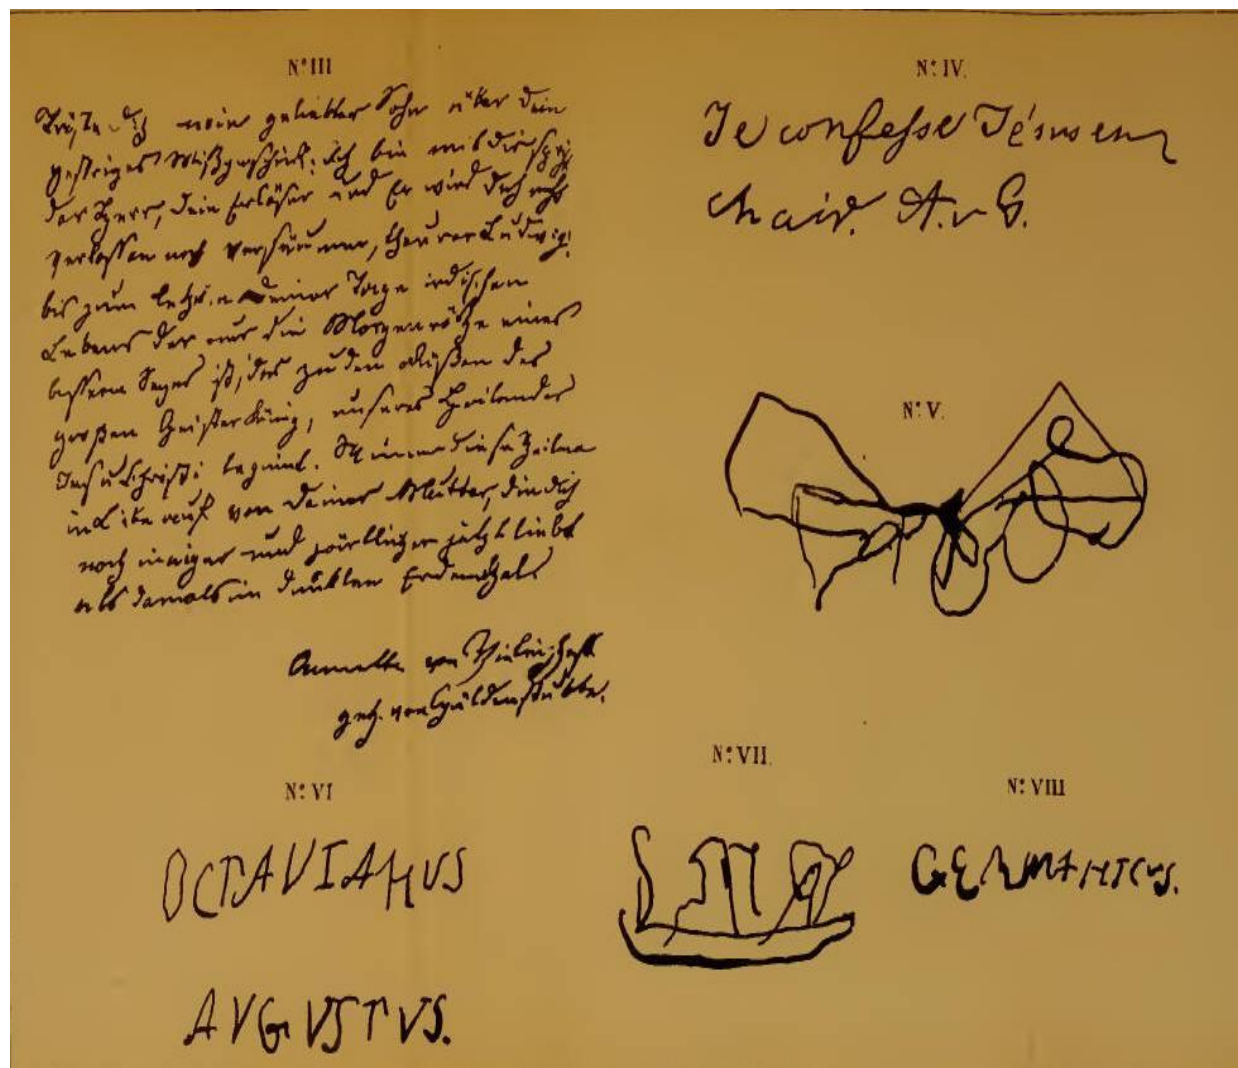 Nº III
Tröste Dich mein geliebter Sohn über Dein
gestriges Mißgeschick: Ich bin mit dir spricht
der Herr, dein Erlöser und Er wird dich nicht
verlassen noch versäumen, theurer Ludwig!
bis zum letzten Deiner Tage irdischen
Lebens der nur die Morgenröthe eines
bessern Seyns ist, das zu den Füßen des
großen Geister König, unseres Heilandes
Jesu Christi beginnt. Nimm diese Zeilen
in Liebe auf von Deiner Mutter, die dich
noch inniger und zärtlicher jetzt liebt
als damals im dunklen Erdenthal.
Annette von
geb. von Güldenstubbe.
Nº IV.
Je confesse Jésus en
chair. A. v G.
Nº V.
Nº VI
OCTAVIANUS
AVGVSTVS.
Nº VII.
Nº VIII
GERMANICVS.